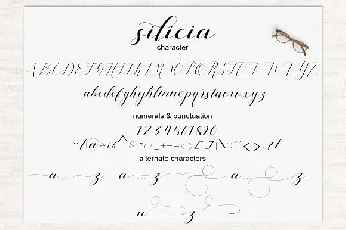 silicia
character
ABCDEFGHIJKLMNOPQRSTUVWXYZ
abcdefghijklmnopqrstuvwxyz
numerals & punctuation
1234567890
alternate characters
a z a z a z
a z